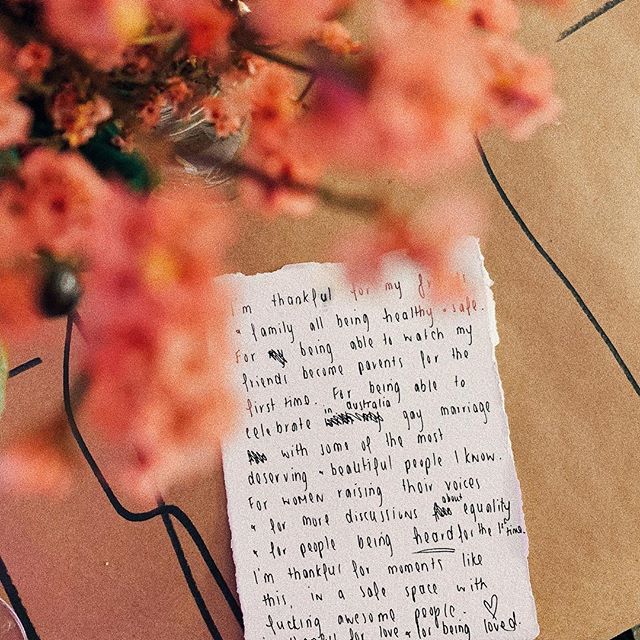 I'm thankful for my
+ family all being healthy + safe.
For being able to watch my
friends become parents for the
first time. For being able to
celebrate in australia gay marriage
with some of the most
deserving + beautiful people I know.
For women raising their voices
+ for more discussions about equality
+ for people being heard for the 1st time.
I'm thankful for moments like
this, in a safe space with
fucking awesome people. ♡
thankful for love + for being loved.